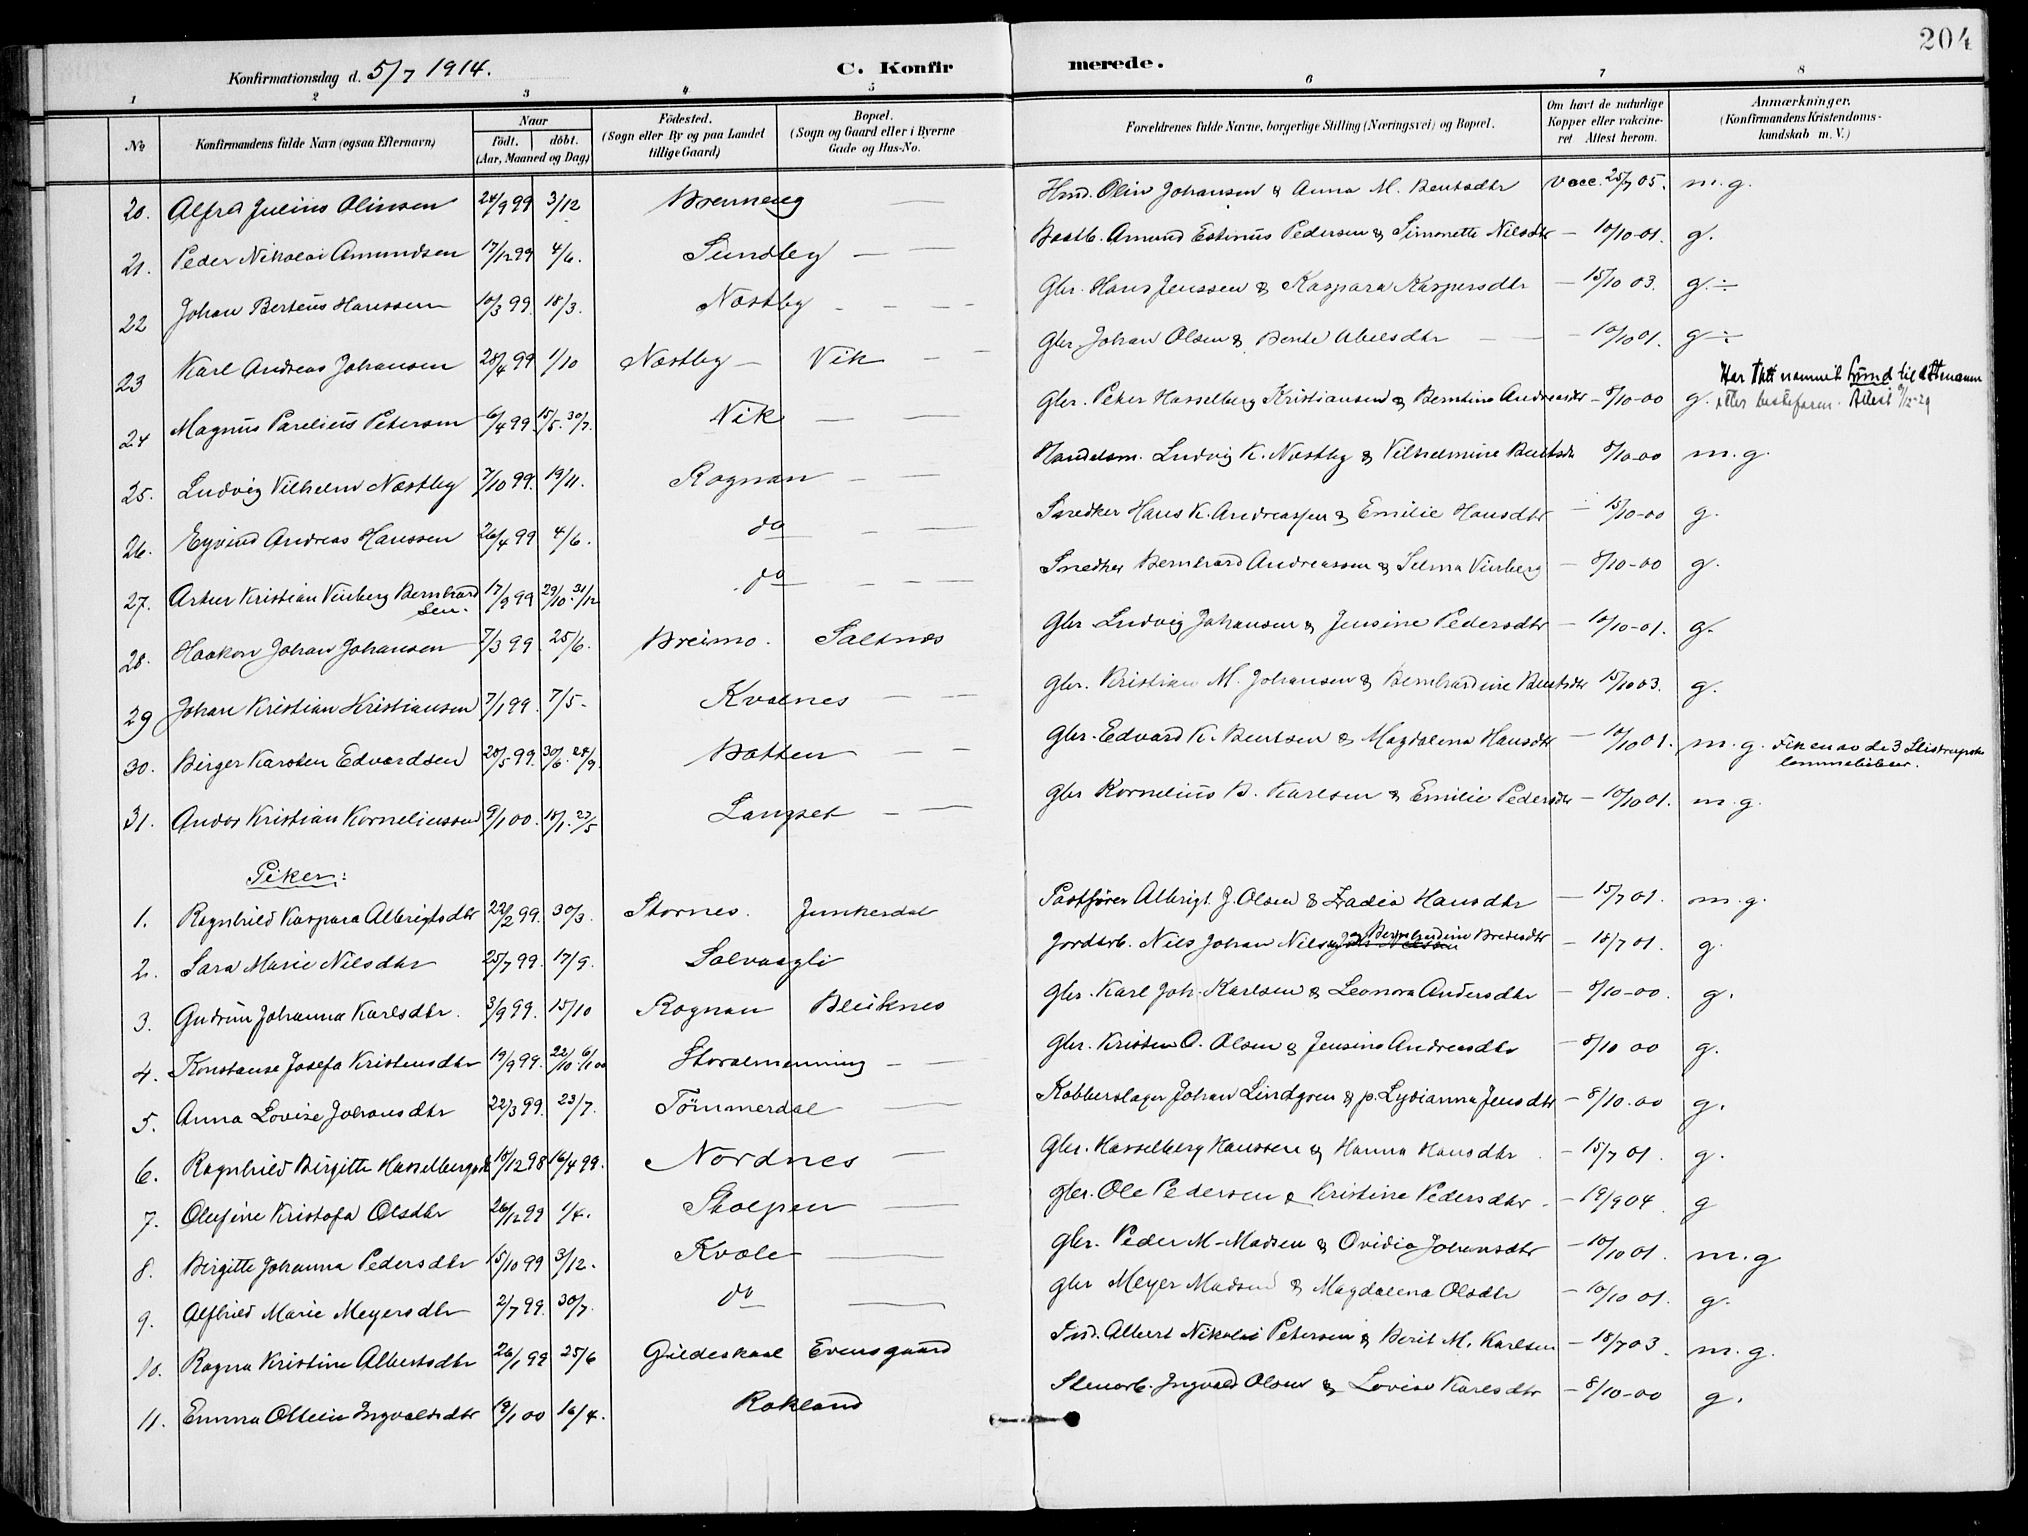 204
Konfirmationsdag d. 5/7 1914.
C. Konfirmerede.
1 2 3 4 5 6 7 8
No
Konfirmandens fulde Navn (ogsaa Efternavn)
Naar
født. døbt.
(Aar, Maaned og Dag)
Fødested.
(Sogn eller By og paa Landet
tillige Gaard)
Bopæl.
(Sogn og Gaard eller i Byerne
Gade og Hus-No.
Forældrenes fulde Navne, borgerlige Stilling (Næringsvei) og Bopæl.
Om havt de naturlige
Kopper eller vakcine-
ret Attest herom.
Anmærkninger.
(Konfirmandens Kristendoms-
kundskab m. V.)
20. Alfred Julius Olinsen 24/9 99 3/12 Brenneng — Husd. Olin Johansen & Anna M. Bentsdtr Vacc. 25/7 05. m.g.
21. Peder Nikolai Amundsen 17/12 99 4/6. Sundby — Baatb. Amund Estinus Pedersen & Simonette Nilsdtr — 10/10-01. g.
22 Johan Berteus Hanssen 10/3 99. 18/3. Næstby - — — Gbr. Hans Jenssen & Kaspara Kaspersdtr — 15/10 03. g. ÷
23 Karl Andreas Johansen 28/4 99 1/10 Næstby — Vik — — Gbr. Johan Olsen & Bente Abelsdtr — — — 10/10 01. g ÷
24 Magnus Parelius Petersen 6/4 99. 15/5. 30/7. Vik — — Gbr. Peter Hasselberg Kristiansen & Berntine Andreasdtr — 8/10-00 g. Har tatt navnet Lund til ettenavn
etter bestefaren. Attest /12-29
25. Ludvig Vilhelm Næstby 7/10 99. 19/11. Rognan — — Handelsm. Ludvig K. Næstby & Vilhelmine Bentsdtr 8/10-00 m.g.
26. Eyvind Andreas Hanssen 26/4 99 4/6. do — — Snedker Hans K. Andreassen & Emilie Hansdtr — 15/10-00 g.
27. Artur Kristian Viuberg Bernhard
sen. 17/9 99 29/10. 31/12 do — — — Snedker Bernhard Andreassen & Selma Viuberg — 8/10-00 g.
28. Haakon Johan Johansen 7/3 99. 25/6. Breimo. Saltnes Gbr Ludvig Johansen & Jensine Pedersdtr — 10/10-01. g.
29 Johan Kristian Kristiansen 7/1 99. 7/5- Kvænes — — Gbr. Kristian M. Johansen & Bernhardine Bentsdtr 15/10 03. g.
30. Birger Karsten Edvardsen 28/5 99. 30/6. 24/9. Botten — — Gbr. Edvard K. Bentsen & Magdalena Hansdtr — 10/10 01. m.g. Fik en av de 3
31. Andor Kristian Korneliussen 9/1 00. 18/1. 27/5 Langset — — Gbr Kornelius B. Karlsen & Emilie Pedersdtr — 10/10 01. m.g.
Piker:
1. Ragnhild Kaspara Albrigtsdtr 22/2 99. 30/3. Stornes. Junkerdal Postfører Albrigt J. Olsen & Zadia Hansdtr — 15/7 01. m.g.
2. Sara Marie Nilsdtr 25/7 99. 17/9. Solvaagli Jordarb. Nils Johan Nilsen & Bernhardine Bredesdtr — 18/7 01. g.
3. Gudrun Johanna Karlsdtr. 3/9 99. 15/10 Rognan Bleiknes Gbr. Karl Joh. Karlsen & Leonora Andersdtr — 8/10-00. g.
4. Konstanse Josefa Kristensdtr 19/9 99. 22/10. 6/1 00 Storalmenning — — Gbr. Kristen O. Olsen & Jensine Andreasdtr — 8/10 00 g.
5. Anna Lovise Johansdtr 22/3 99. 23/7. Tömmerdal — Kobberslager Johan Lindgren & p. Lydianna Jensdtr — 8/10.00 g.
6. Ragnhild Birgitte Hasselbergsdt 18/12 98 16/4 99. Nordnes — Gbr. Hasselberg Hanssen & Hanna Hansdtr — 15/7 01. g.
7. Olufine Kristofa Olsdtr 26/12 99 1/4. Stolpen — Gbr. Ole Pedersen & Kristine Pedersdtr. — 19/9 04 g
8. Birgitte Johanna Pedersdtr 15/10 99 3/12. Kvæle — Gbr. Peder M. Madsen & Ovidia Johansdtr — 10/10 01. m.g
9. Alfhild Marie Meyersdtr 2/7 99. 30/7. do — Gbr Meyer Madsen & Magdalena Olsdtr — 10/10 01. g.
10. Ragna Kristine Albertsdtr 26/1 99 25/6 Gildeskaal Evensgaard Ind. Albert Nikolai Petersen & Berit M. Karlsen — 18/7 03. m.g.
11. Emma Otteie Ingvaldsdtr 19/1 00 16/4. Rokland Stenarb. Ingvald Olsen & Lovise Karlsdtr — 8/10-00 g.